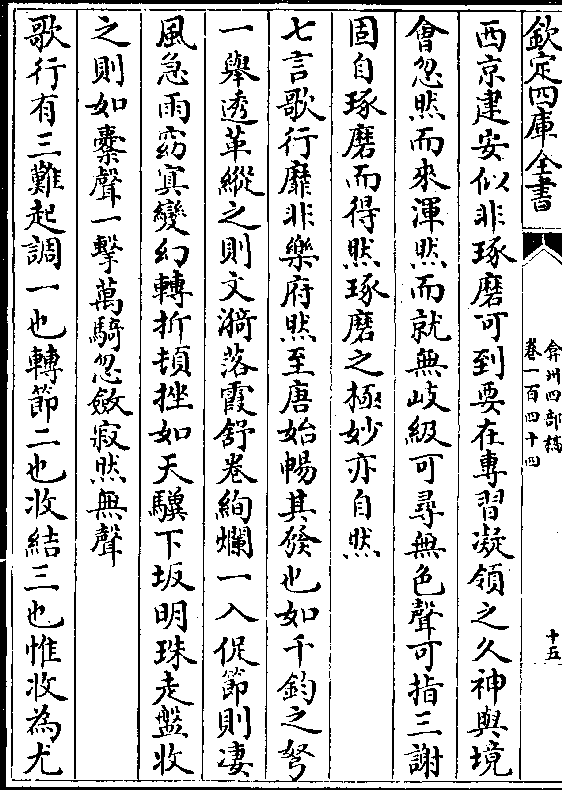 欽定四庫全書
弇州四部稿
卷一百四十四
十五
西京建安似非琢磨可到要在專習凝領之久神與境
會忽然而來渾然而就無岐級可尋無色聲可指三謝
固自琢磨而得然琢磨之極妙亦自然
七言歌行靡非樂府然至唐始暢其發也如千鈞之弩
一舉透革縱之則文漪落霞舒卷絢爛一入促節則凄
風急雨窈冥變幻轉折頓挫如天驥下坂明珠走盤收
之則如橐聲一擊萬騎忽斂寂然無聲
歌行有三難起調一也轉節二也收結三也惟收為尤